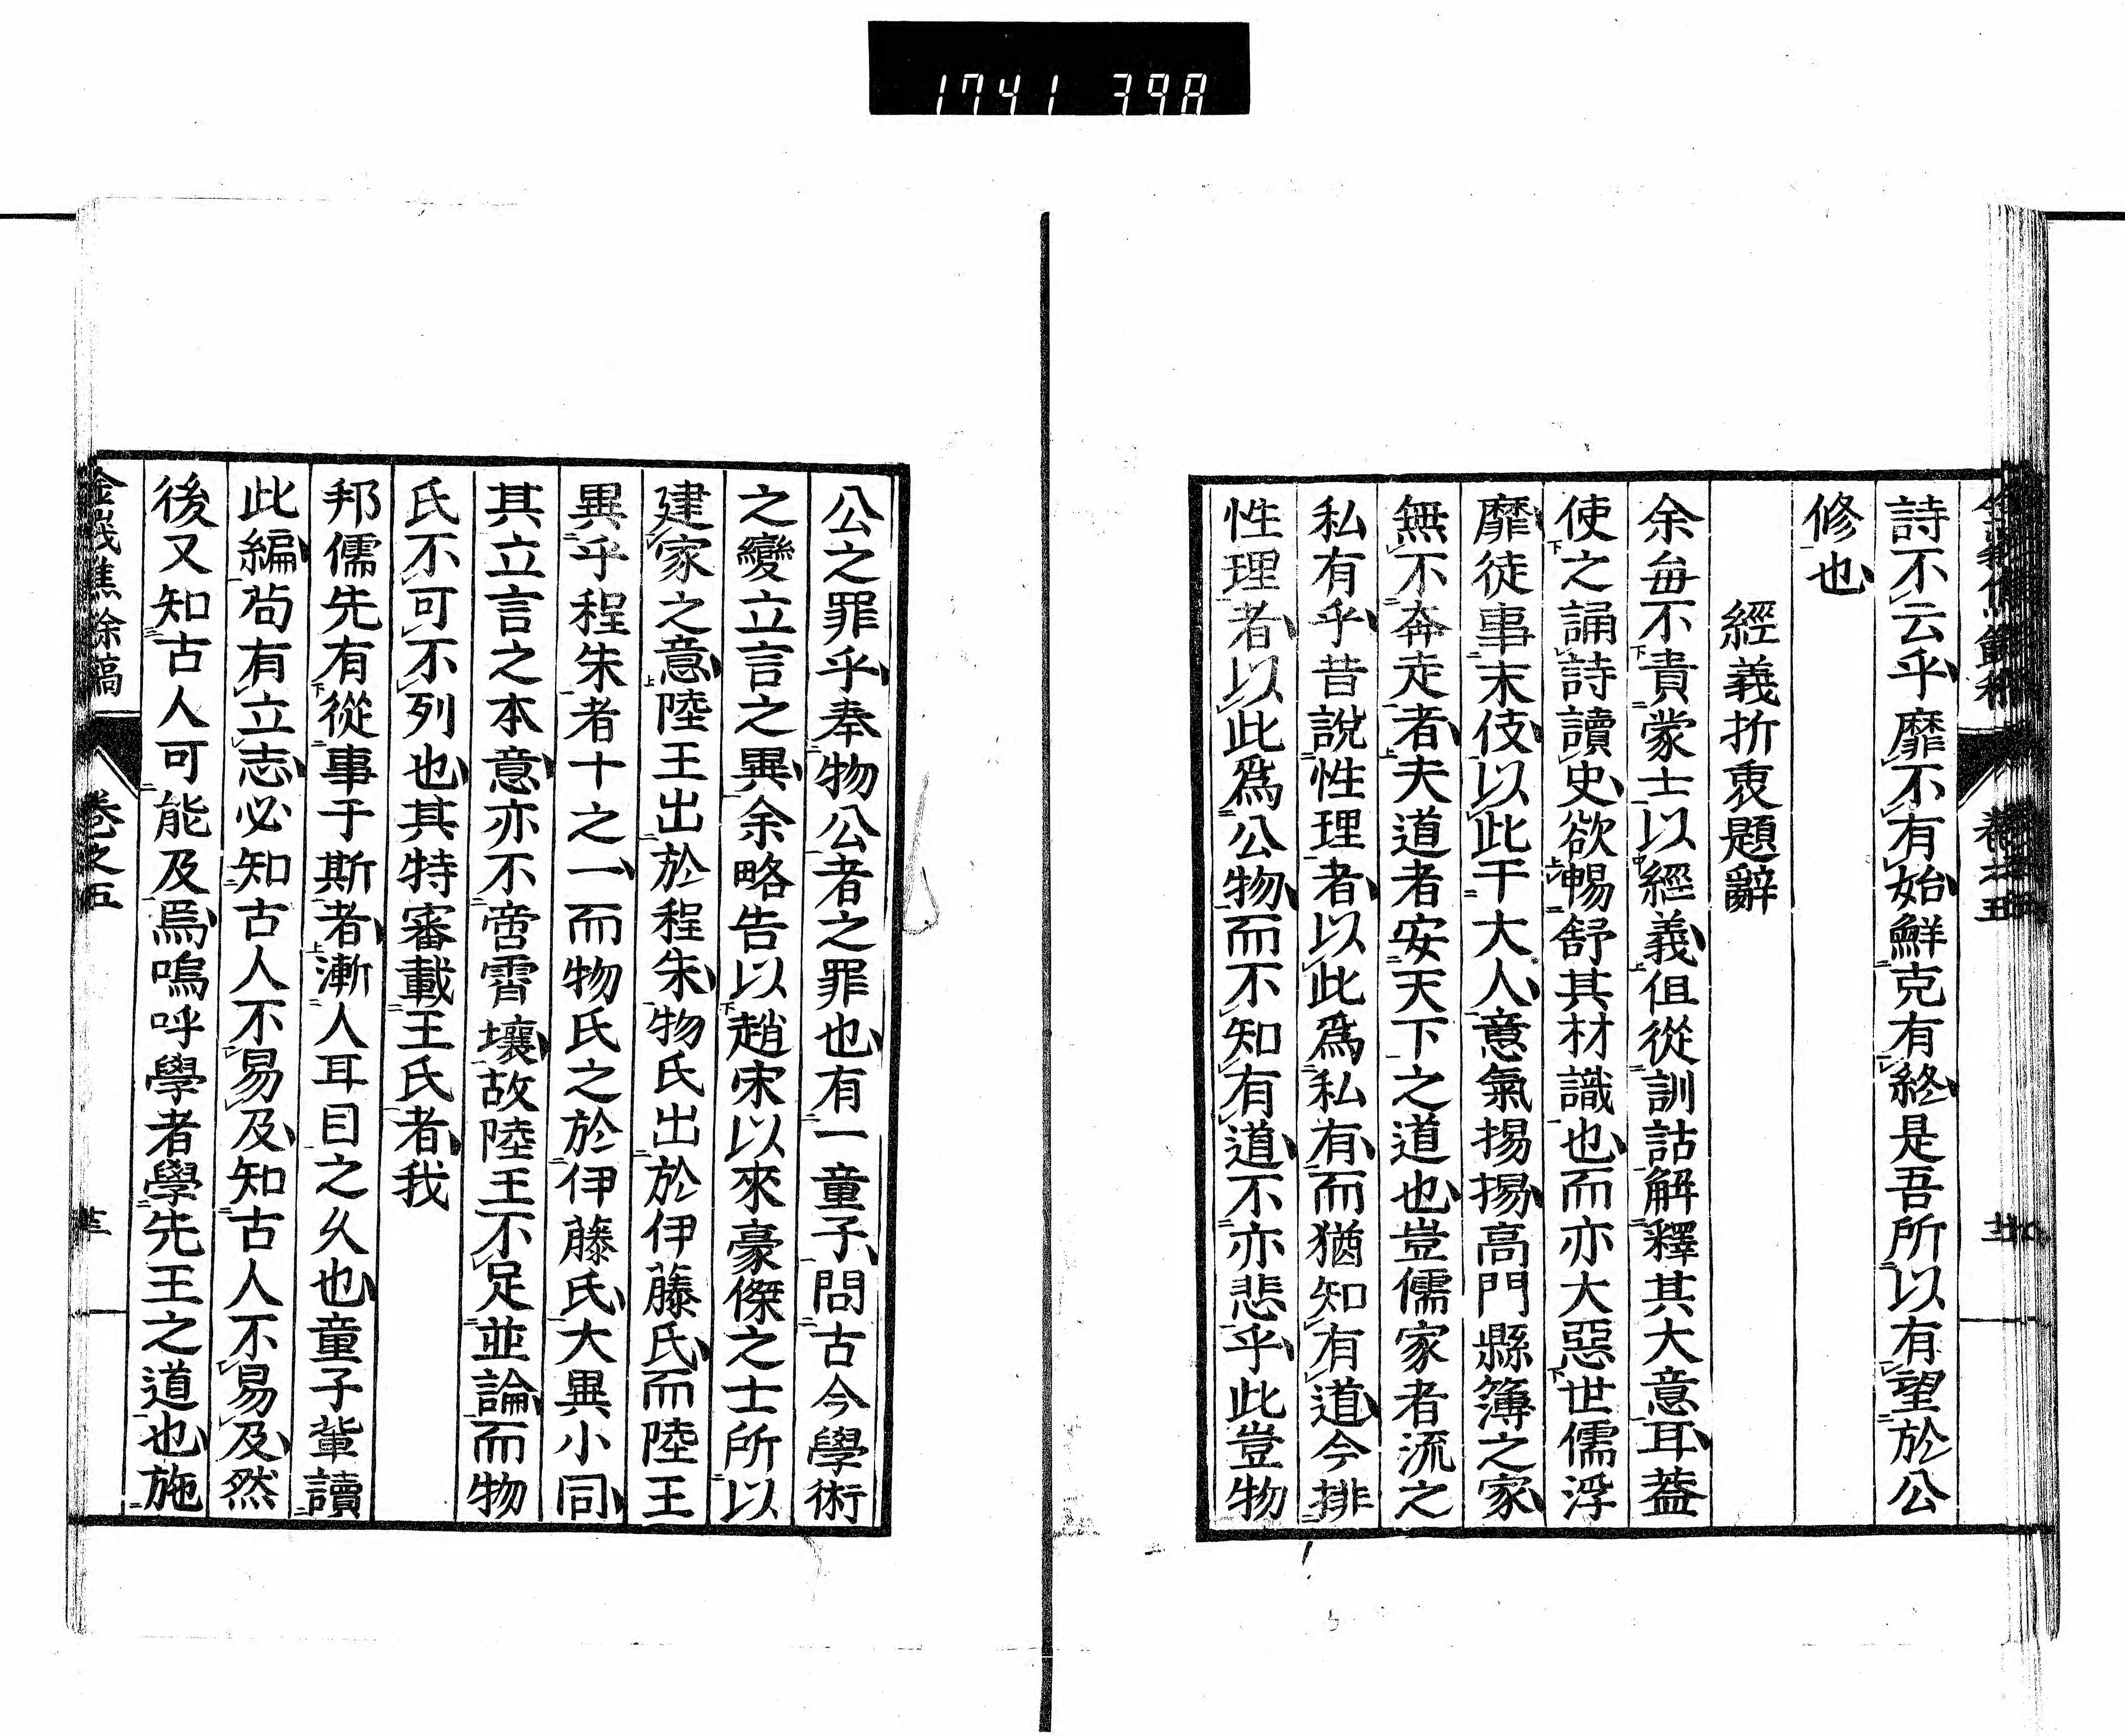 1741 398
詩不云乎靡不有始鮮克有終是吾所以有望於公
修也
經義折衷題辭
余每不貴蒙士以經義但從訓詁解釋其大意耳蓋
使之誦詩讀史欲暢舒其材識也而亦大惡世儒浮
靡徒事末伎以此干大人意氣揚揚高門縣簿之家
無不奔走者夫道者安天下之道也豈儒家者流之
私有乎昔說性理者以此爲私有而猶知有道今排
性理者以此爲公物而不知有道不亦悲乎此豈物
公之罪乎奉物公者之罪也有一童子問古今學術
之變立言之異余略告以趙宋以來豪傑之士所以
建家之意陸王出於程朱物氏出於伊藤氏而陸王
異乎程朱者十之一而物氏之於伊藤氏大異小同
其立言之本意亦不啻霄壤故陸王不足並論而物
氏不可不列也其特審載王氏者我
邦儒先有從事于斯者漸人耳目之久也童子輩讀
此編尚有立志必知古人不易及知古人不易及然
後又知古人可能及焉嗚呼學者學先王之道也施
金峩焦餘稿
卷之五